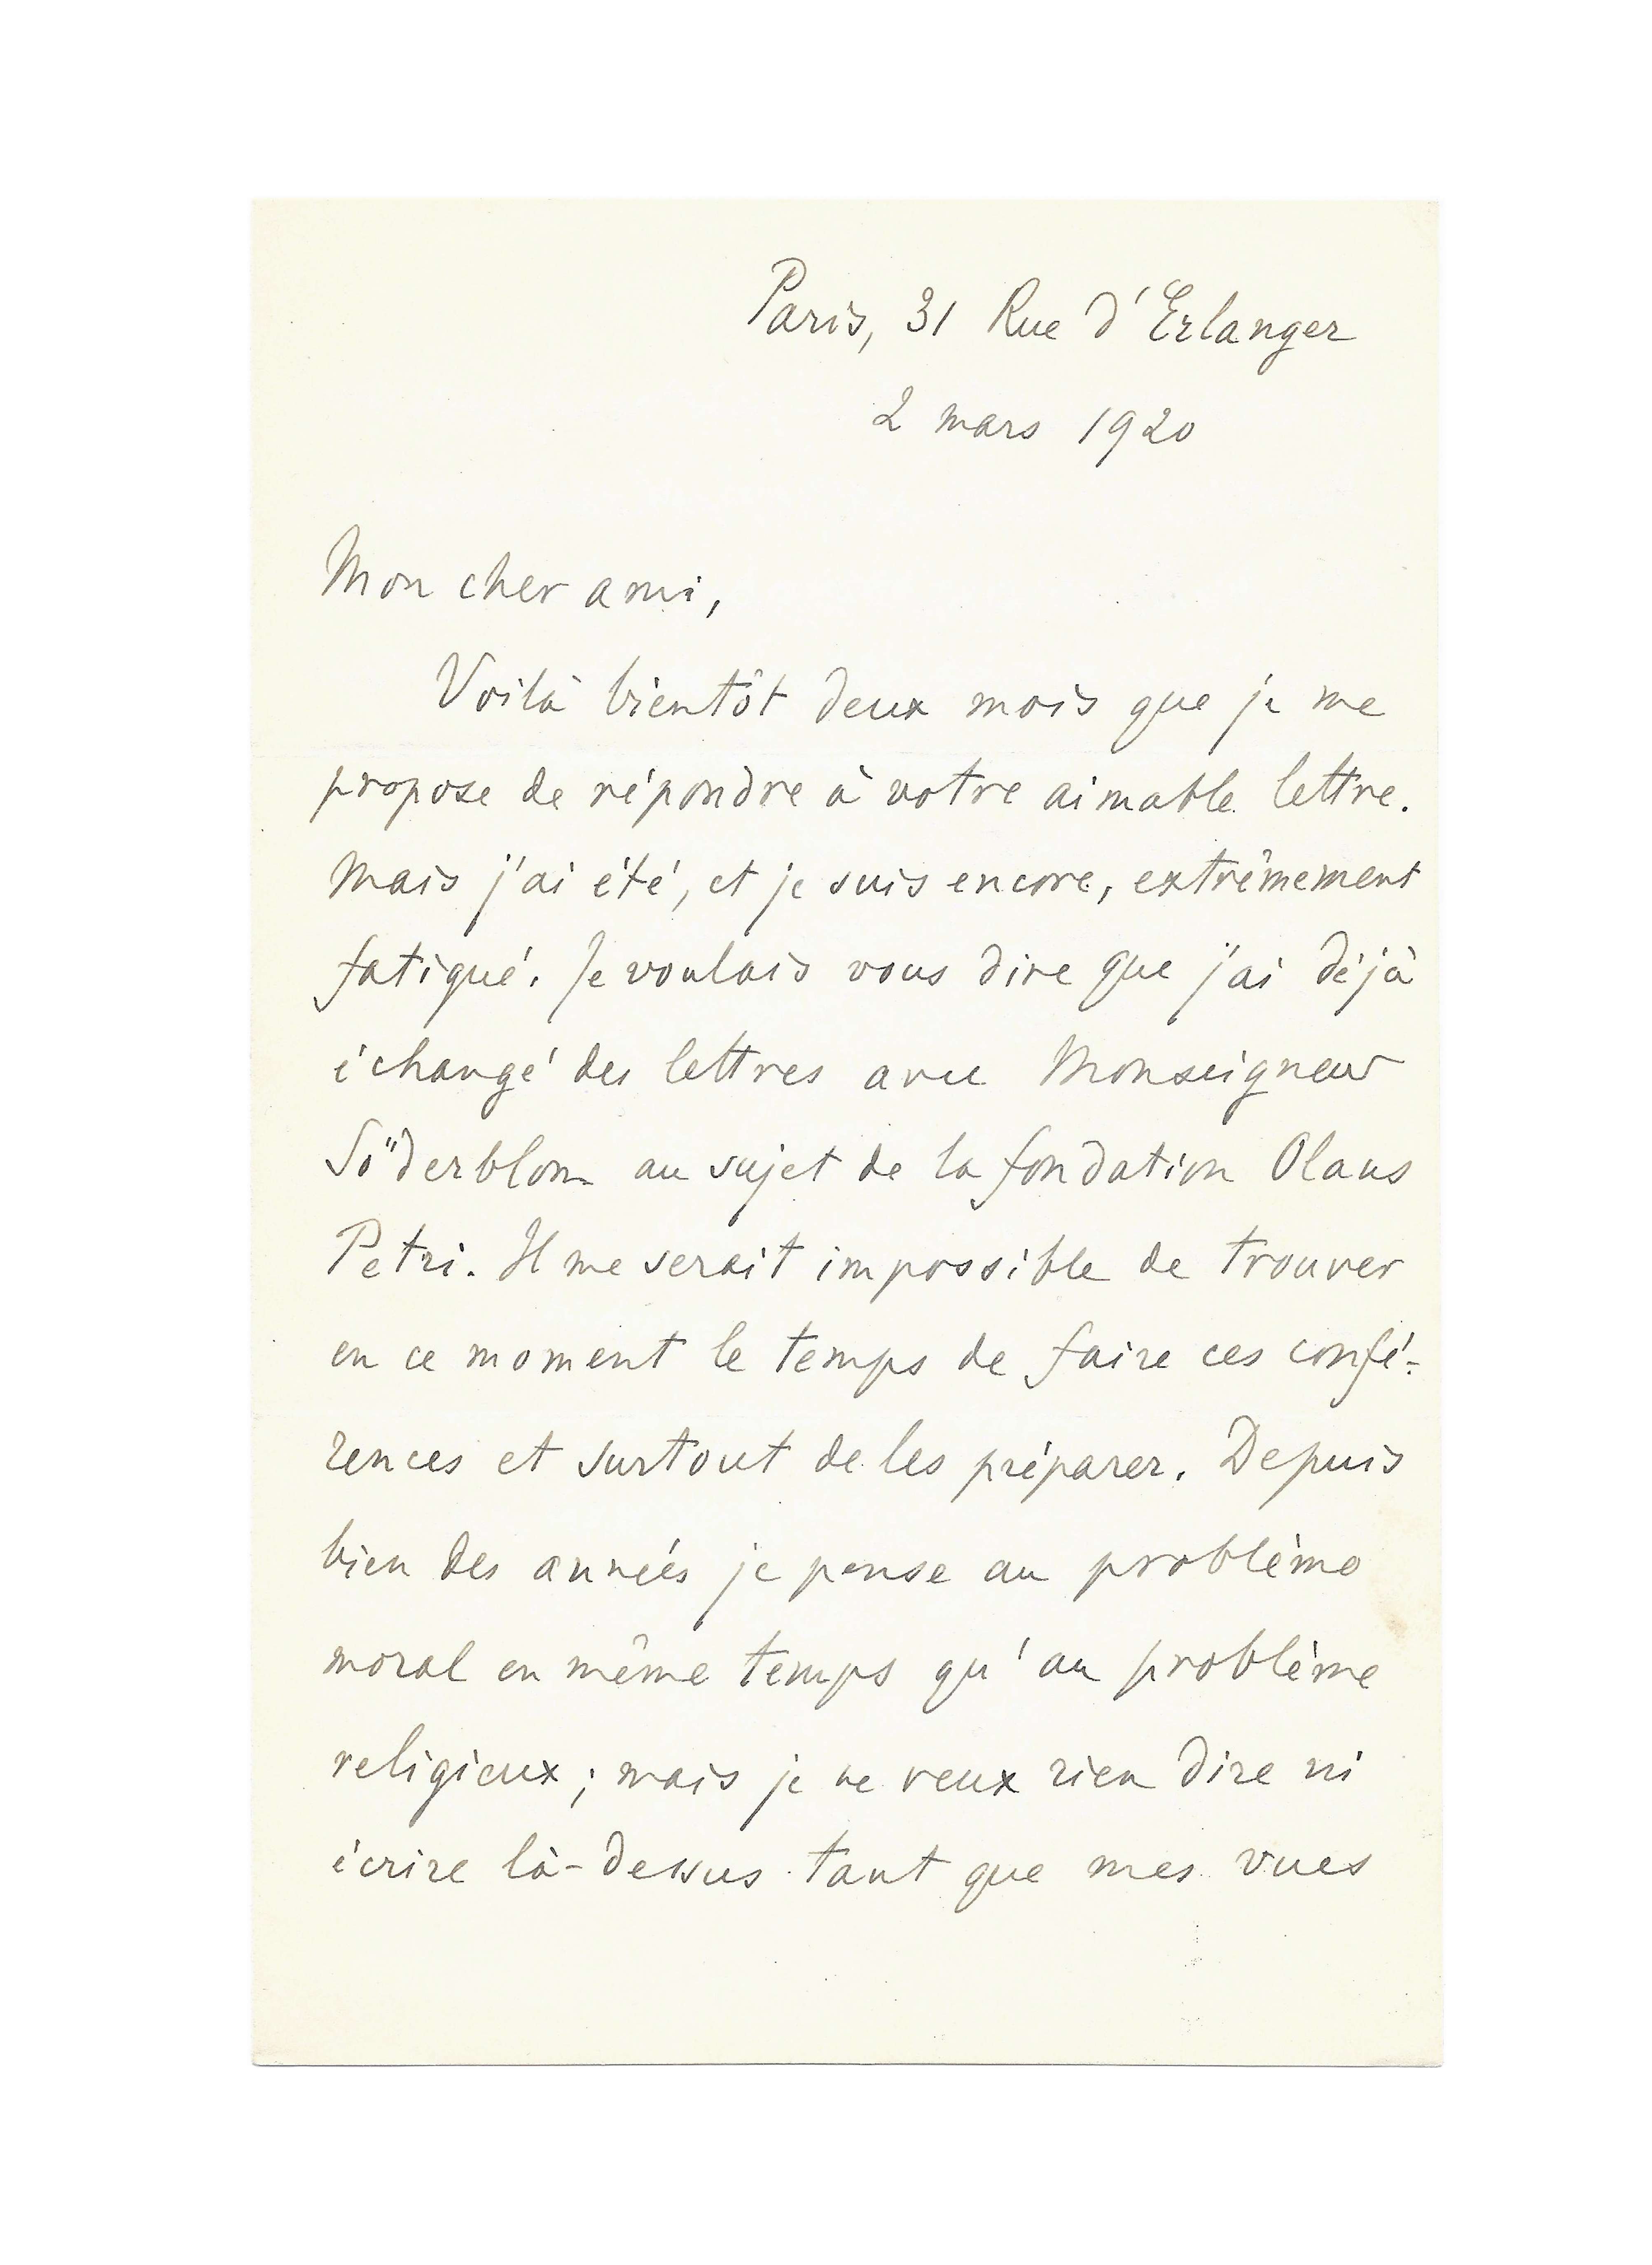 Paris, 31 Rue d'Erlanger
2 mars 1920
Mon cher ami,
Voilà bientôt deux mois que je me
propose de répondre à votre aimable lettre.
Mais j'ai été, et je suis encore, extrêmement
fatigué. Je voulais vous dire que j'ai déjà
échangé des lettres avec Monseigneur
Söderblom au sujet de la fondation Olaus
Petri. Il me serait impossible de trouver
en ce moment le temps de faire ces confé-
rences et surtout de les préparer. Depuis
bien des années je pense au problème
moral en même temps qu'au problème
religieux ; mais je ne veux rien dire ni
écrire là-dessus tant que mes vues